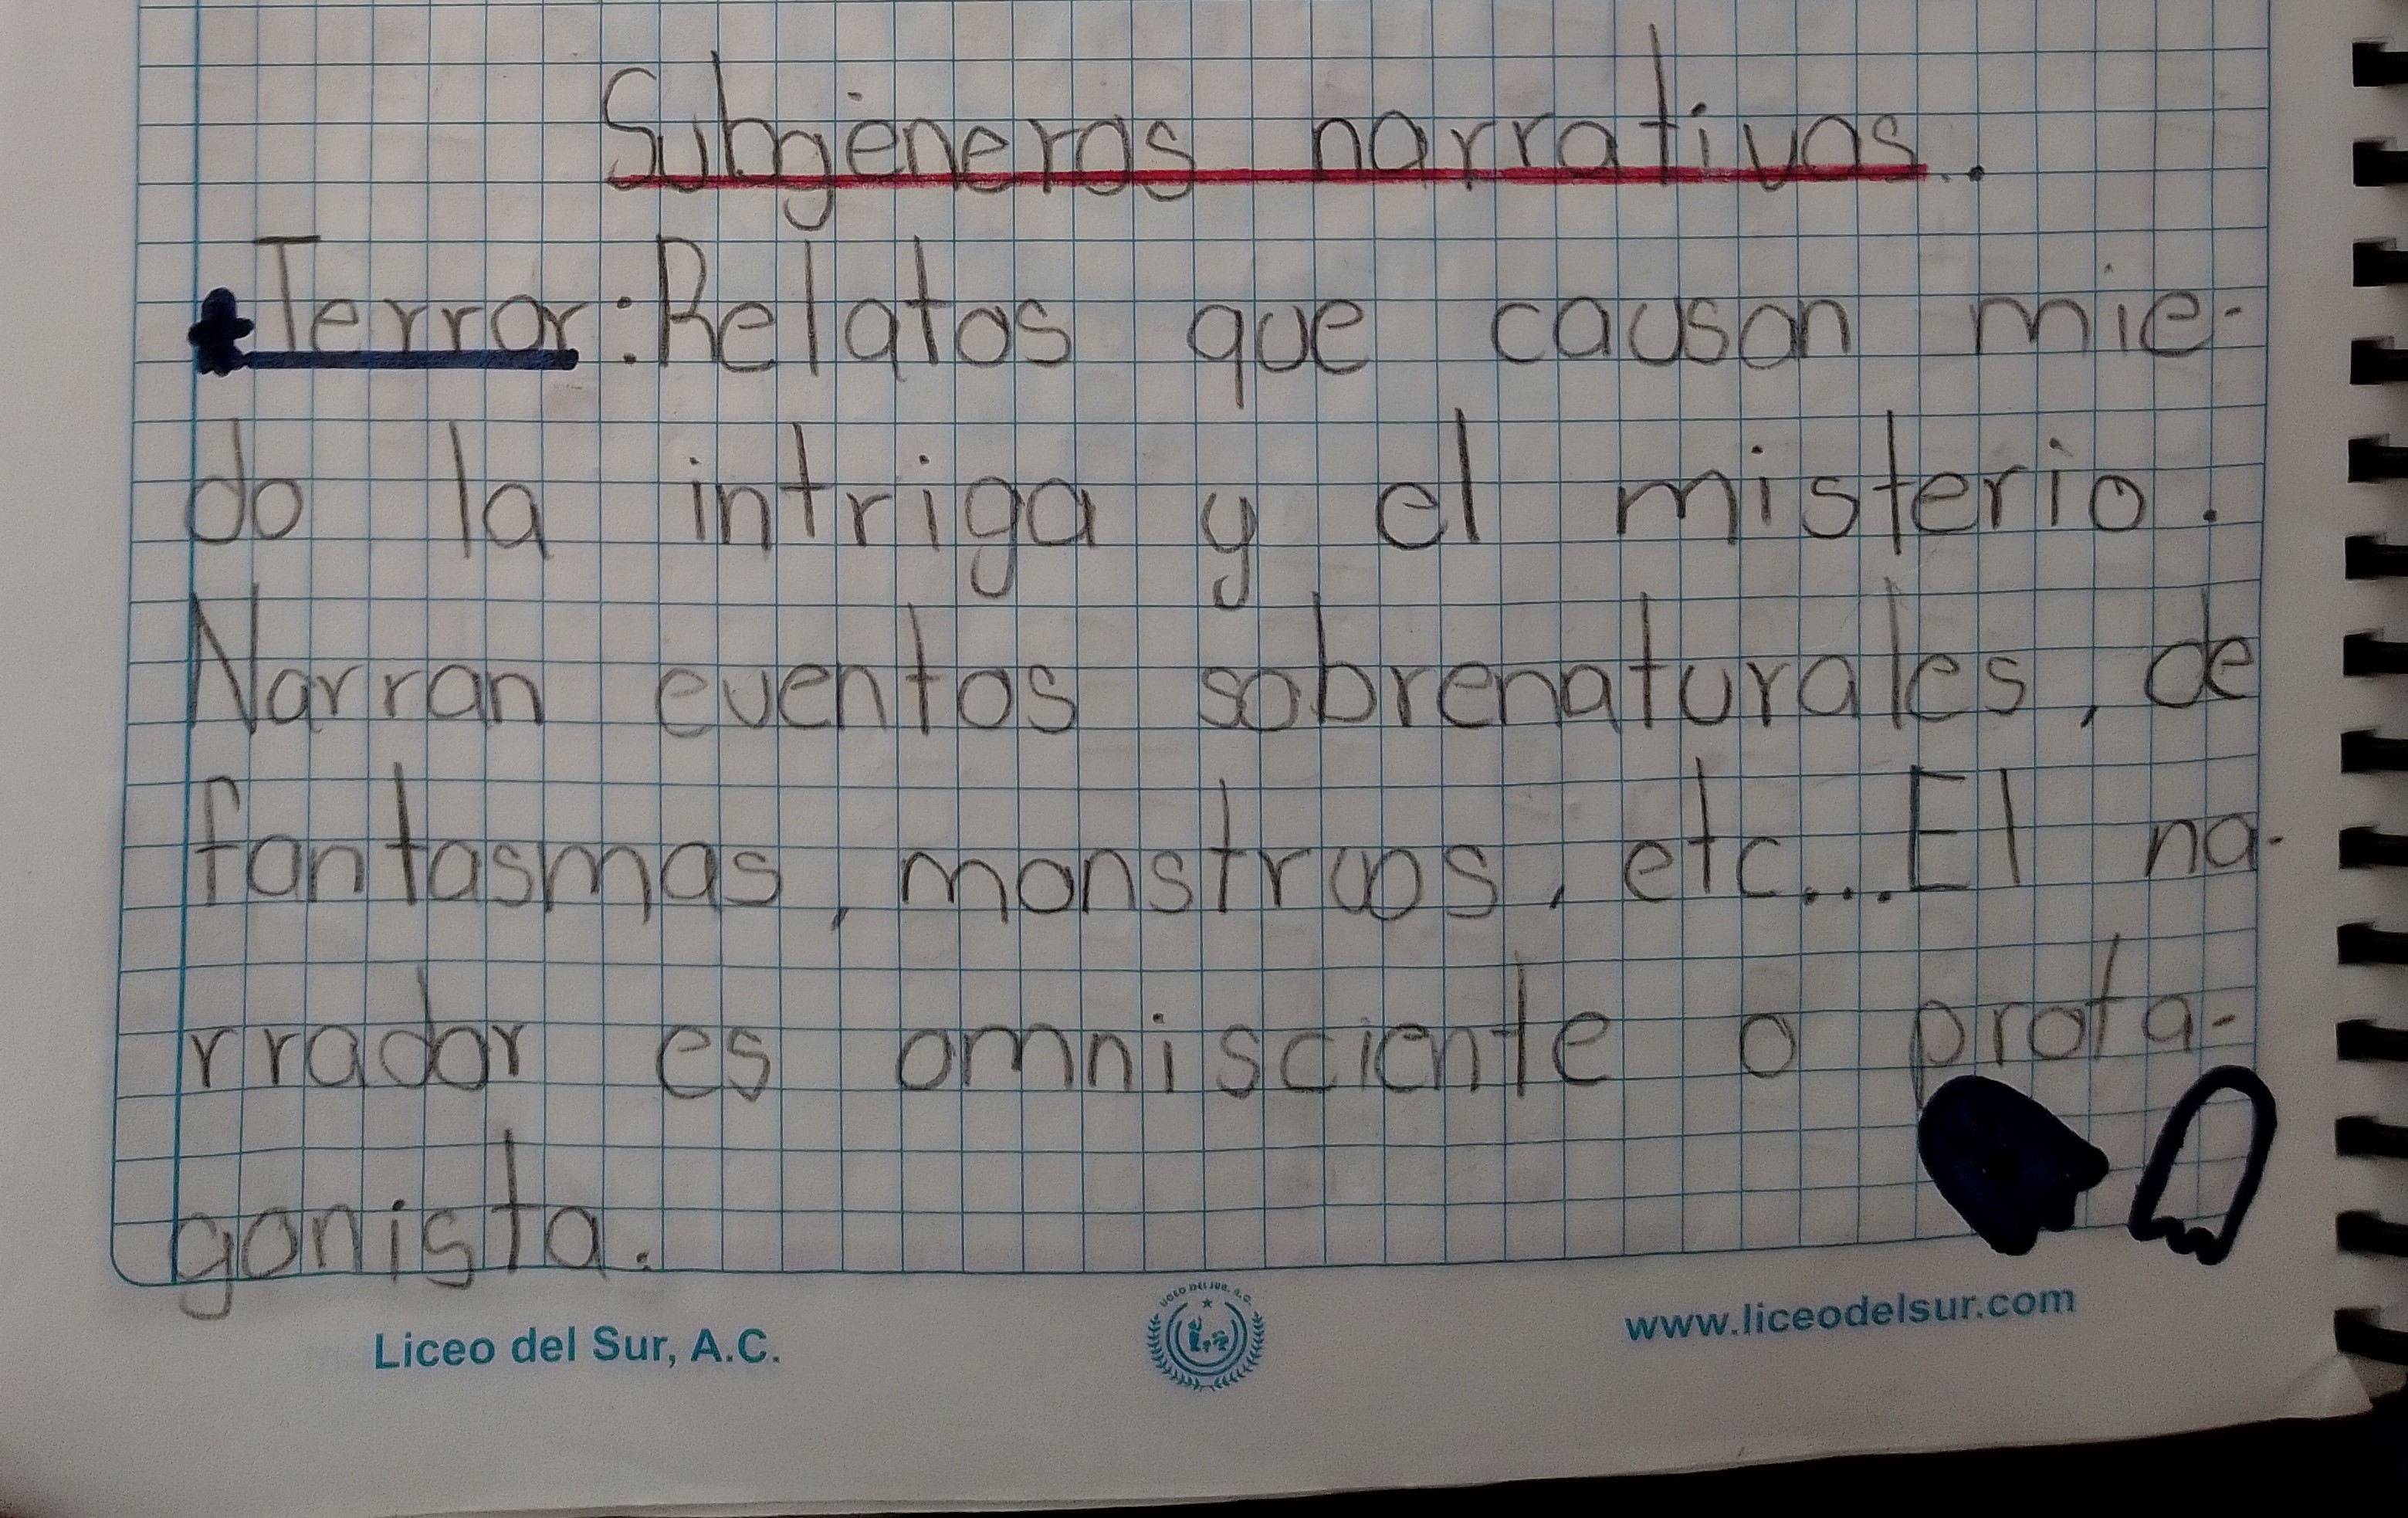 Subgéneros narrativos.
Terror: Relatos que causan mie-
do la intriga y el misterio.
Narran eventos sobrenaturales, de
fantasmas, monstruos, etc... El na-
rrador es omnisciente o prota-
gonista.
LICEO DEL SUR, A.C.
Liceo del Sur, A.C.
www.liceodelsur.com